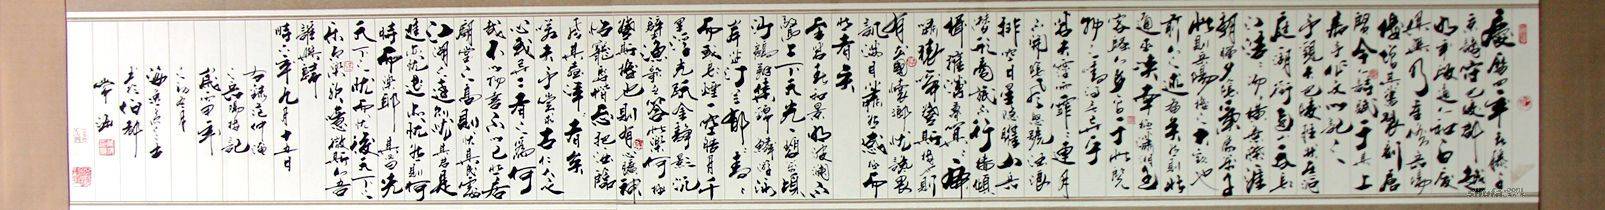 慶曆四年春滕子
京謫守巴陵郡越
明年政通人和百廢
具興乃重修岳陽
樓增其舊制刻唐
賢今人詩賦于其上
屬予作文以記之
予觀夫巴陵勝狀在洞
庭一湖銜遠山吞長
江浩浩湯湯橫無際涯
朝暉夕陰氣象萬千
此則岳陽樓之大觀也
前人之述備矣然則北
通巫峽南極瀟湘遷
客騷人多會于此覽
物之情得無異乎
若夫霪雨霏霏連月
不開陰風怒號濁浪
排空日星隱曜山岳
潛形商旅不行檣傾
楫摧薄暮冥冥虎
嘯猿啼登斯樓也則
有去國懷鄉憂讒畏
譏滿目蕭然感極而
悲者矣
至若春和景明波瀾不
驚上下天光一碧萬頃
沙鷗翔集錦鱗游泳
岸芷汀蘭郁郁青青
而或長煙一空皓月千
里浮光躍金靜影沉
璧漁歌互答此樂何極
登斯樓也則有心曠神
怡寵辱皆忘把酒臨
風其喜洋洋者矣
嗟夫予嘗求古仁人之
心或異二者之為何
哉不以物喜不以己悲居
廟堂之高則憂其民處
江湖之遠則憂其君是
進亦憂退亦憂然則何
時而樂耶其必曰先
天下之憂而憂後天下之
樂而樂歟噫微斯人吾
誰與歸
時六年九月十五日
右錄范仲淹
之岳陽樓記